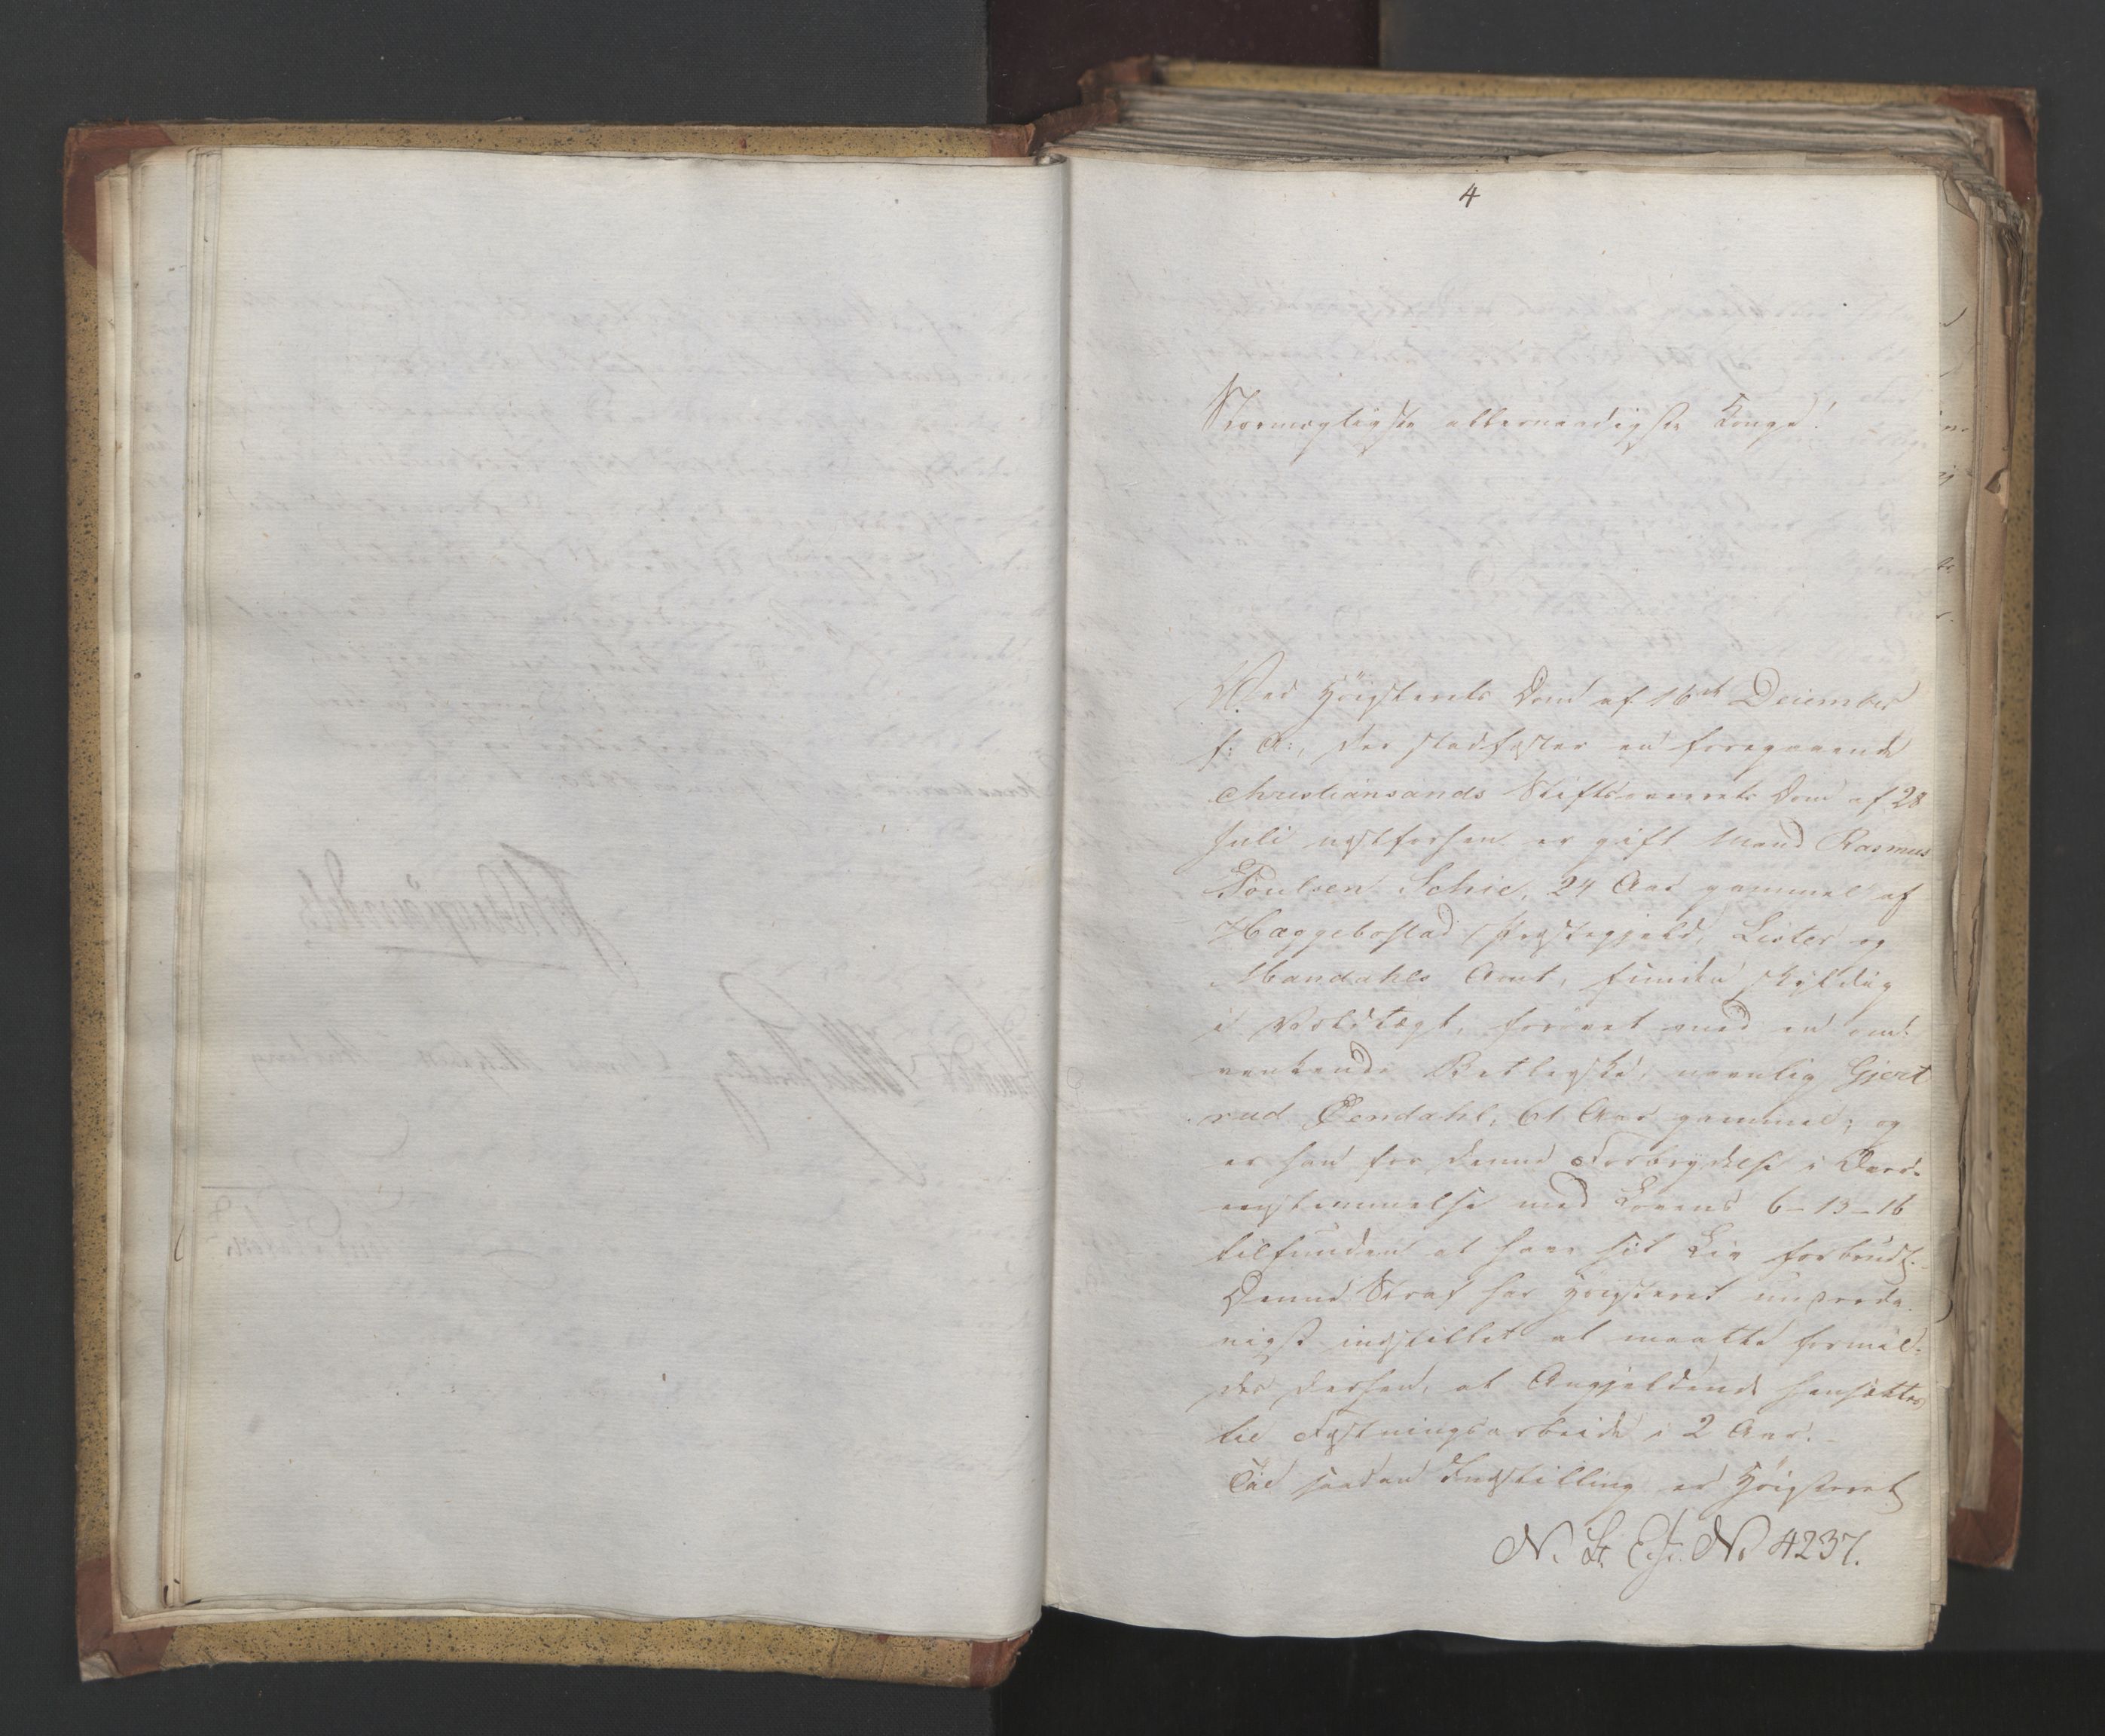 4
Stormægtigste allernaadigste Konge!
Ved Høiesterets Dom af 16de December
f: A:, der stadfæster en foregaaende
Christiansands Stiftsoverrets Dom af 28
Juli næstforhen er gift Mand Rasmus
Poulsen Schie, 24 Aar gammel af
Hæggebostad Præstegjeld, Lister og
Mandahls Amt, funden skyldig
i Voldtægt, forøvet mod en om-
vankende Betlerske, navnlig Gjert
rud Øendahl, 61 Aar gammel; og
er han for denne Forbrydelse i Over-
eensstemmelse med Lovens 6-13-16
tilfunden at have sit Liv forbrudt.
Denne Straf har Høiesteret underda-
nigst indstillet at maatte formil-
des derhen, at Angjeldende hensættes
til Fæstningsarbeide i 2 Aar.
Til saadan Indstilling er Høiesteret
N. St. Exp. No 4237.